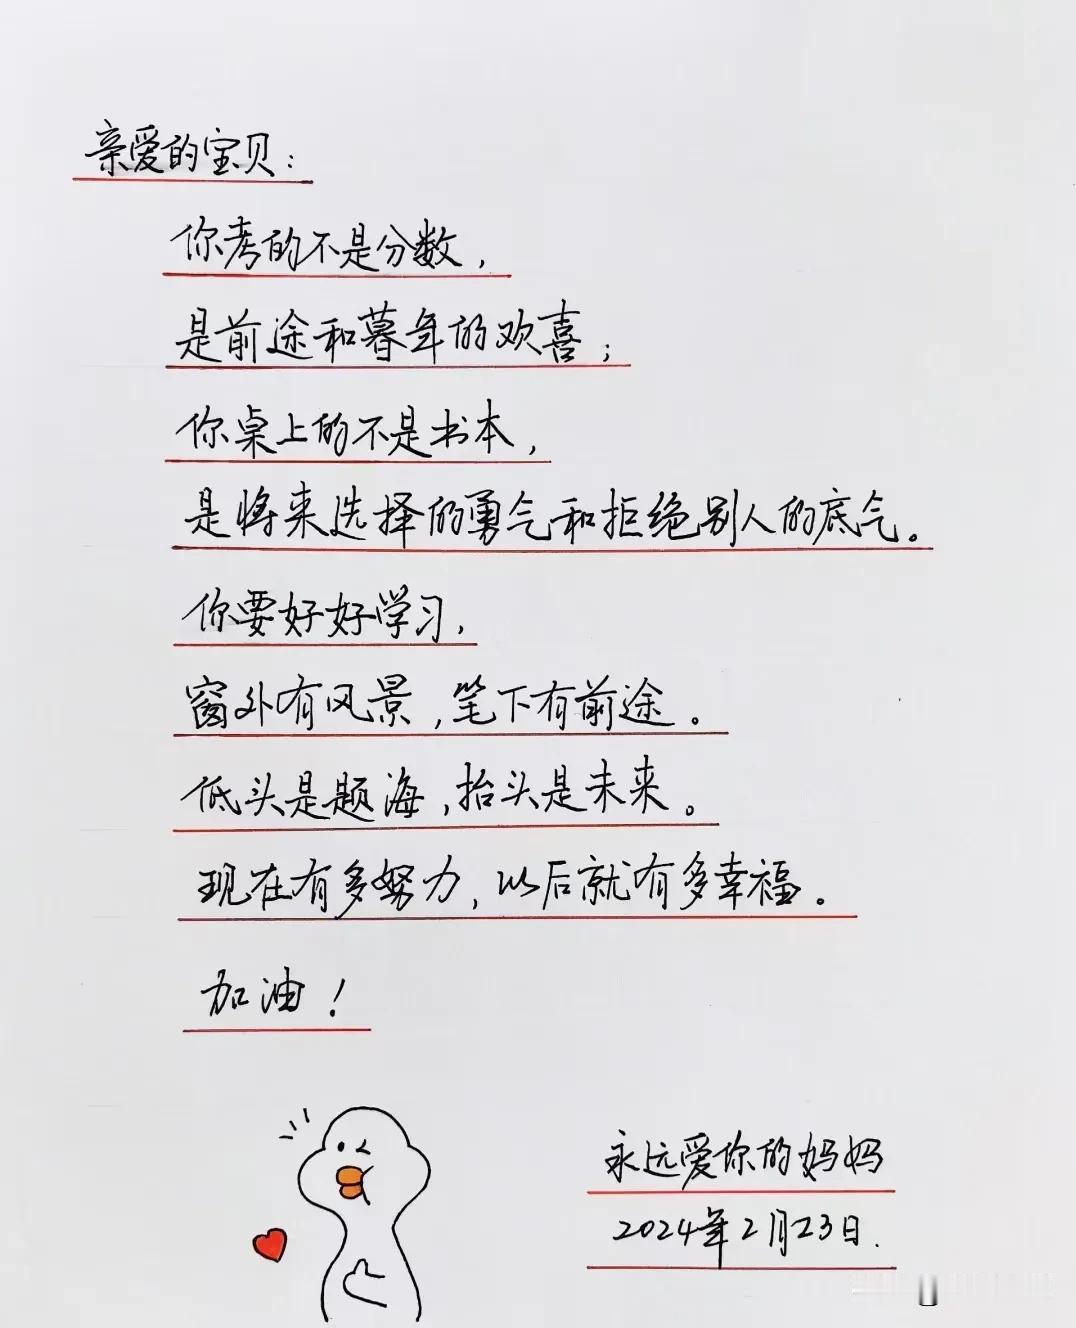 亲爱的宝贝：
你考的不是分数，
是前途和暮年的欢喜；
你桌上的不是书本，
是将来选择的勇气和拒绝别人的底气。
你要好好学习，
窗外有风景，笔下有前途。
低头是题海，抬头是未来。
现在有多努力，以后就有多幸福。
加油！
永远爱你的妈妈
2024年2月23日.